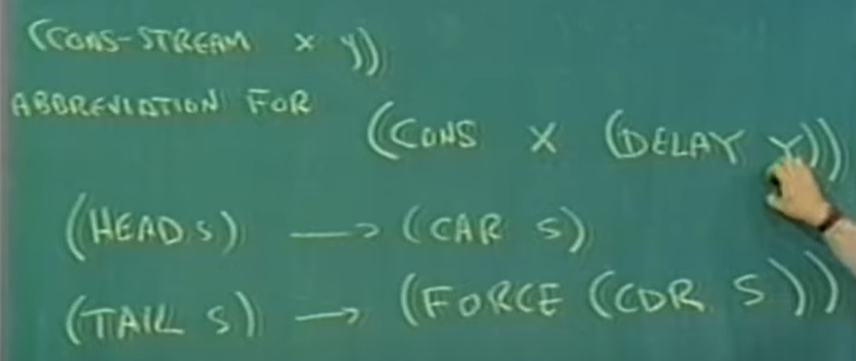 (CONS-STREAM X Y)
ABBREVIATION FOR
(CONS X (DELAY Y))
(HEAD S) → (CAR S)
(TAIL S) → (FORCE (CDR S))